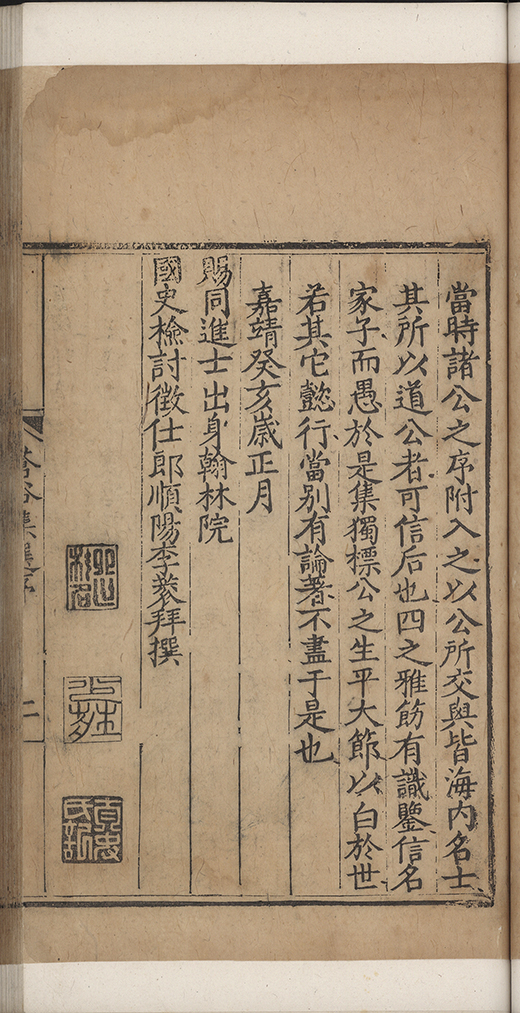 當時諸公之序附入之以公所交與皆海内名士
其所以道公者可信后也四之雅飭有識鑒信名
家子而愚於是集獨標公之生平大節以白於世
若其它懿行當别有論著不盡于是也
嘉靖癸亥歳正月
賜同進士出身翰林院
國史檢討徵仕郎順陽李蓘拜撰
集選序
二